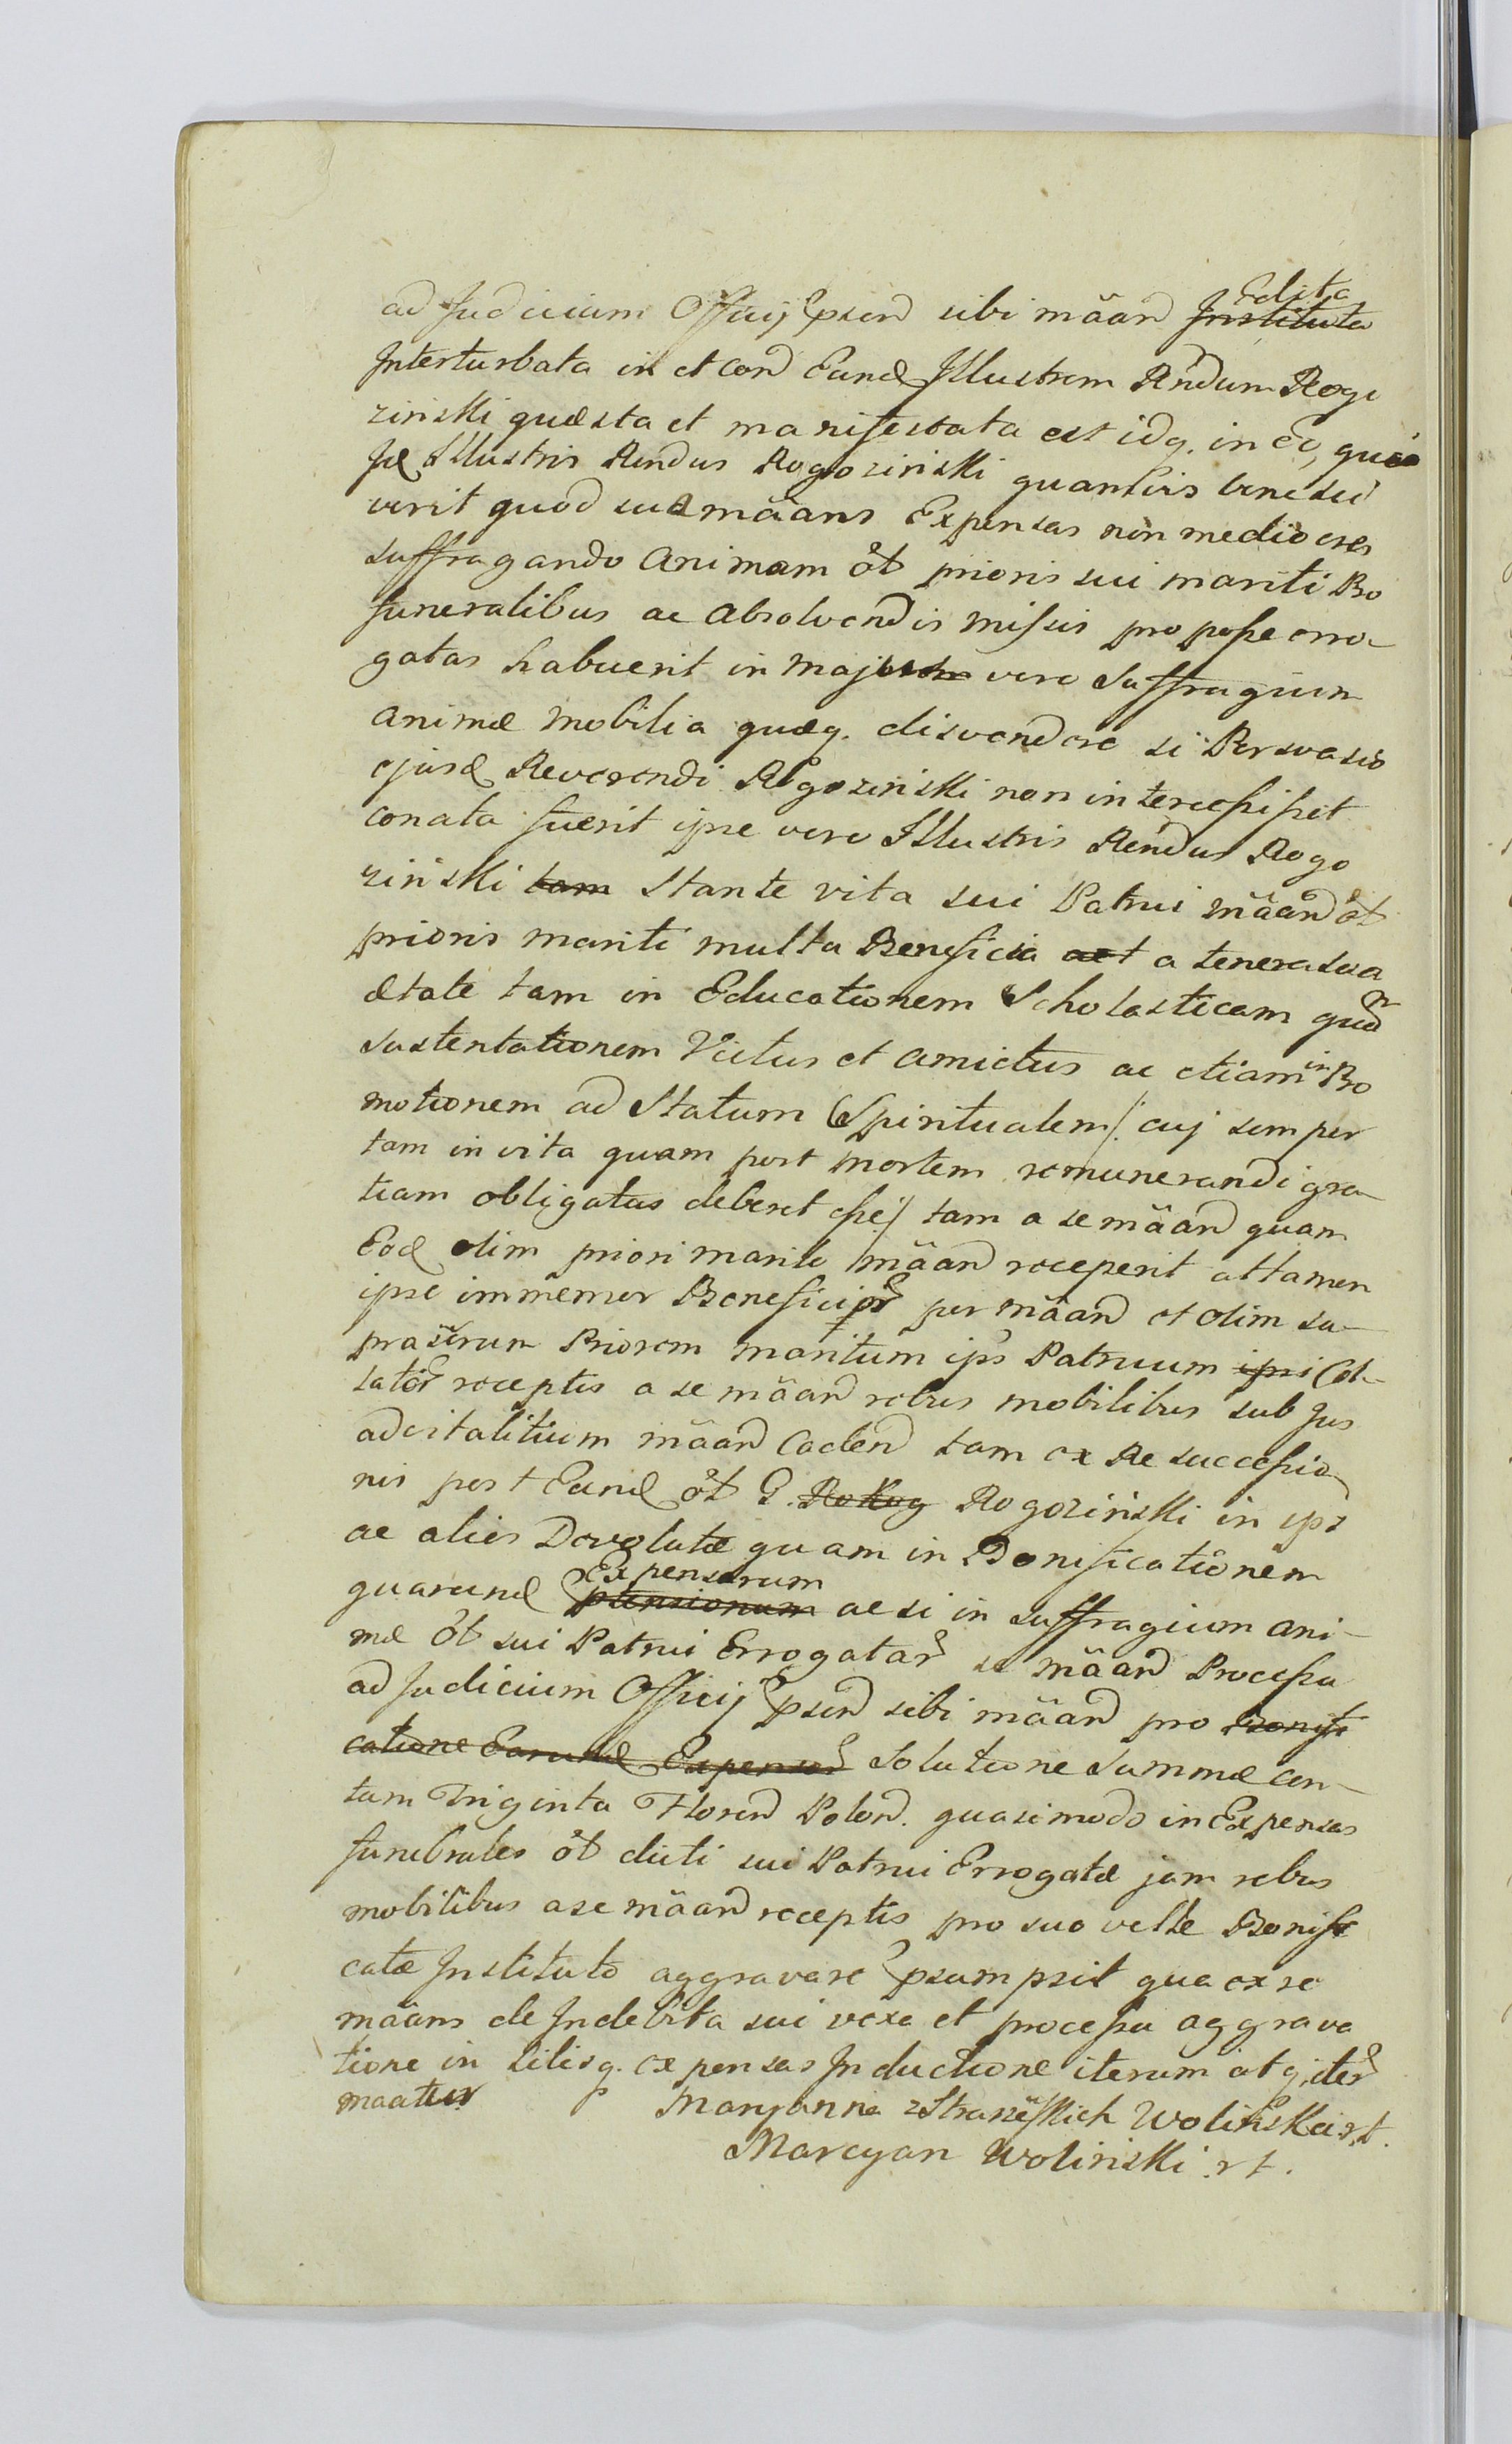 ad Judicium Officij psen sibi mäan Edita Instituta
Interturbata in et con Eund Illustrem Rndum Rogo
zinski quæsta et manifestata est idq. in eo, quia
Illustris Rendus Rogozinski quamvis bene sci
verit quod sua mäans Expensas non mediocres
suffragando animam öt prioris sui mariti Pro
funeralibus ac absolvendis missis pro posse erro-
gatas habuerit in majus vero Suffragium
animæ mobilia quæq. disvendere si Persvasio
ejusd Reverendi Rogozinski non intercessisset
conata fuerit ipse vero Illustris Rendus Rogo
zinski tam Stante vita sui Patrui mäan öt
prioris mariti multa Beneficia act a tenera sua
ætate tam in Educationem Scholasticam quam
sustentationem Victus et amictus ac etiam in Pro
motionem ad Statum Spiritualem /: cuj semper
tam in vita quam post mortem remunerandi gra-
tiam obligatus deberet esse :/ tam a se mäan quam
Eod olim priori marito mäan receperit attamen
ipse immemor Beneficior per mäan et olim su-
prascrum Priorem maritum ips Patruum ipsi Col-
lator receptis a se mäan rebus mobilibus sub Jus
advitalitium mäan Caden tam ex Re successio
nis post Eund öt G. Ro Rog Rogozinski in ips
ac alios Devolutæ quam in Bonificationem
quarund Expensarum pensionum ac si in suffragium ani-
mæ öt sui Patrui Errogatar se mäan Processu
ad Judicium Officij psen sibi mäan pro Bonifi
catione Earund Expensar Solutione Summæ cen-
tum Triginta Floren Polon. quasimodo in Expensas
funebrales öt dicti sui Patrui Errogatæ jam rebus
mobilibus a se mäan receptis pro suo velle Bonifi
catæ Instituto aggravare psumpsit qua ex re
mäans de Indebita sui vexa et processu aggrava
tione in litisq. expensas Inductione iterum atq. iter
maatur Maryanna z Straszeskich Wolinska rt.
Marcyan Wolinski rt.